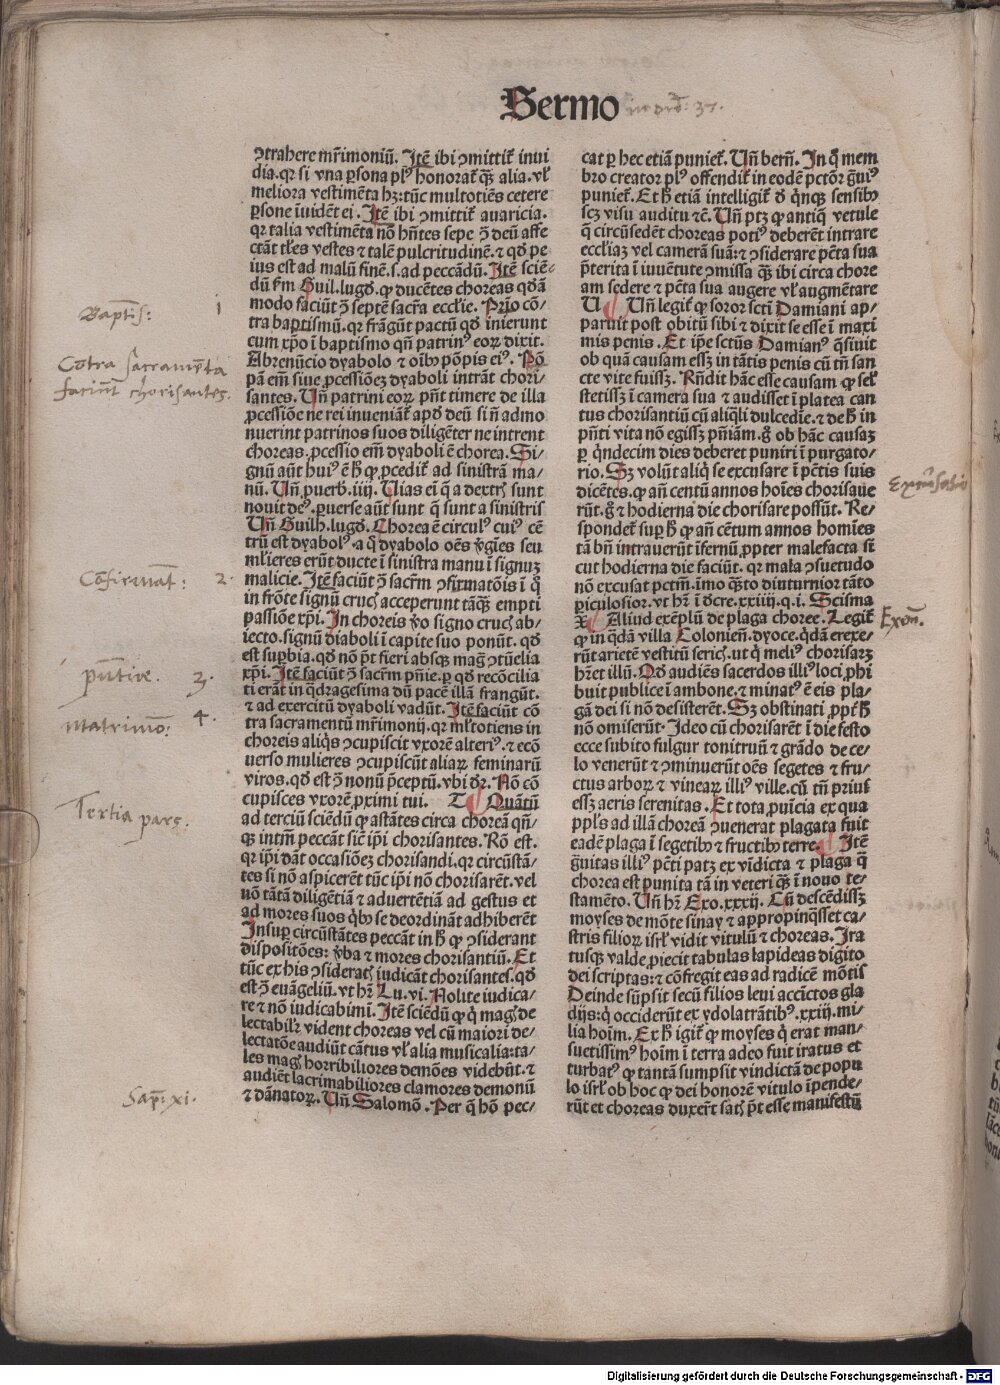 Sermo in ord: 37.
ꝯtrahere mr̃imoniũ. Itẽ ibi ꝯmittit̃ inui
dia. qr si vna ꝑsona plꝰ honorat̃ qꝫ alia. vl̃
meliora vestimẽta hꝫ: tũc multotiẽs cetere
ꝑsone ĩuidẽt ei. Itẽ ibi ꝯmittit̃ auaricia.
qr talia vestimẽta nõ hñtes sepe ꝯ̃ deũ affe
ctãt tl̃es vestes ⁊ talẽ pulcritudinẽ. ⁊ qð pe
ius est ad malũ finẽ .s. ad peccãdũ. Itẽ sciẽ⸗
dũ ẽm Guil. lugd̃. ꝙ ducẽtes choreas qðã
modo faciũt ꝯ̃ septẽ sacr̃a eccl̃ie. Prĩo cõ⸗
tra baptismũ. qr frãgũt pactũ qð inierunt
cum xp̃o ĩ baptismo qñ patrinꝰ eoꝝ dixit.
Abrenũcio dyabolo ⁊ oĩbꝰ põpis eiꝰ. Põ
pã em̃ siue ꝓcessiõeꝫ dyaboli intrãt chori⸗
santes. Uñ patrini eoꝝ pñt timere de illa
ꝓcessiõe ne rei inueniãt̃ apð deũ si ñ admo
nuerint patrinos suos diligẽter ne intrent
choreas. ꝓcessio em̃ dyaboli ẽ chorea. Si⸗
gnũ aũt huiꝰ ẽ ħ ꝙ ꝓcedit̃ ad sinistrã ma⸗
nũ. Uñ ꝓuerb. iiij. Uias eĩ q̃ a dextrꝭ sunt
nouit deꝰ. ꝑuerse aũt sunt q̃ sunt a sinistris
Uñ Guilh. lugd̃. Chorea ẽ circulꝰ cuiꝰ cẽ
trũ est dyabolꝰ. a q̊ dyabolo oẽs ꝟ̃gĩes seu
ml̃ieres erũt ducte ĩ sinistra manu ĩ signuꝫ
malicie. Itẽ faciũt ꝯ̃ sacr̃m ꝯfirmatõis ĩ q̊
in frõte signũ crucꝭ acceperunt tãqꝫ empti
passiõe xp̃i. In choreis ꝟo signo crucꝭ ab⸗
iecto. signũ diaboli ĩ capite suo ponũt. qð
est suꝑbia. qð nõ p̃t fieri absqꝫ mag̃ ꝯtũelia
xp̃i. Itẽ faciũt ꝯ̃ sacr̃m pñie. ꝑ qð recõcilia
ti erãt in q̃dragesima dũ pacẽ illã frangũt.
⁊ ad exercitũ dyaboli vadũt. Itẽ faciũt cõ
tra sacramentũ mr̃imonij. qr ml̃totiens in
choreis aliqͥs ꝯcupiscit vxorẽ alteriꝰ. ⁊ ecõ
uerso mulieres ꝯcupiscũt aliaꝝ feminarũ
viros. qð est ꝯ̃ nonũ p̃ceptũ. vbi dr̃. Nõ cõ
cupisces vxorẽ ꝓximi tui. T Quãtũ
ad terciũ sciẽdũ ꝙ astãtes circa choreã qñ⸗
qꝫ intm̃ peccãt sic̃ ip̃i chorisantes. Rõ est.
qr ip̃i dãt occasiõeꝫ chorisandi. qr circũstã⸗
tes si nõ aspicerẽt tũc ip̃i nõ chorisarẽt. vel
nõ tãtã diligẽtiã ⁊ aduertẽtiã ad gestus et
ad mores suos q̃bꝰ se deordinãt adhiberẽt
Insuꝑ circũstãtes peccãt in ħ ꝙ ꝯsiderant
dispositões: ꝟba ⁊ mores chorisantiũ. Et
tũc ex his ꝯsideratꝭ iudicãt chorisantes. qð
est ꝯ̃ euãgeliũ. vt hr̃. Lu. vi. Nolite iudica⸗
re ⁊ nõ iudicabimĩ. Itẽ sciẽdũ ꝙ q̃ magꝭ de
lectabilr̃ vident choreas vel cũ maiori de⸗
lectatõe audiũt cãtus vl̃ alia musicalia: ta⸗
les magꝭ horribiliores demões videbũt. ⁊
audiẽt lacrimabiliores clamores demonũ
⁊ dãnatoꝝ. Uñ Salomõ. Per q̃ hõ pec⸗
cat ꝑ hec etiã puniet̃. Uñ berñ. In q̊ mem
bro creator plꝰ offendit̃ in eodẽ pctõr g̃uiꝰ
puniet̃. Et ħ etiã intelligit̃ ð qͥnqꝫ sensibꝰ
scꝫ visu auditu ⁊c̃. Uñ ptꝫ ꝙ antiq̃ vetule
q̃ circũsedẽt choreas potiꝰ deberẽt intrare
eccl̃iaꝫ vel camerã suã: ⁊ ꝯsiderare pc̃ta sua
p̃terita ĩ iuuẽtute ꝯmissa qꝫ ibi circa chore
am sedere ⁊ pc̃ta sua augere vl̃ augmẽtare
U Uñ legit̃ ꝙ soror sctĩ Damiani ap⸗
paruit post obitũ sibi ⁊ dixit se esse ĩ maxi
mis penis. Et ip̃e sctũs Damianꝰ q̃siuit
ob quã causam essꝫ in tãtis penis cũ tñ san
cte vite fuissꝫ. Rñdit hãc esse causam ꝙ sel̃
stetissꝫ ĩ camera sua ⁊ audisset ĩ platea can
tus chorisantiũ cũ aliq̃li dulcedĩe. ⁊ de ħ in
pñti vita nõ egissꝫ pñiãm. g̊ ob hãc causaꝫ
ꝑ qͥndecim dies deberet puniri ĩ purgato⸗
rio. Sꝫ volũt aliqͥ se excusare ĩ pc̃tis suis
dicẽtes. ꝙ añ centũ annos hoĩes chorisaue
rũt. g̊ ⁊ hodierna die chorisare possũt. Re⸗
spondet̃ suꝑ ħ ꝙ añ cẽtum annos homĩes
tã bñ intrauerũt ĩfernũ ꝓpter malefacta sic̃
cut hodierna die faciũt. qr mala ꝯsuetudo
nõ excusat pctm̃. imo qꝫto diuturnior tãto
ꝑiculosior. vt hr̃ ĩ ðcre. xxiiij. q. i. Scisma
X Aliud exẽplũ de plaga choree. Legit̃
ꝙ in q̃dã villa Colonieñ. dyoce. q̃dã erexe⸗
rũt arietẽ vestitũ sericꝭ. ut q̊ meliꝰ chorisarꝫ
hr̃et illũ. Qð audiẽs sacerdos illiꝰ loci ꝓhi
buit publice ĩ ambone. ⁊ minatꝰ ẽ eis pla⸗
gã dei si nõ desisterẽt. Sꝫ obstinati ꝓpt̃ ħ
nõ omiserũt. Ideo cũ chorisarẽt ĩ die festo
ecce subito fulgur tonitruũ ⁊ grãdo de ce⸗
lo venerũt ⁊ ꝯminuerũt oẽs segetes ⁊ fru⸗
ctus arboꝝ ⁊ vineaꝝ illiꝰ ville. cũ tñ priuſ
essꝫ aeris serenitas. Et tota ꝓuĩcia ex qua
pplꝰs ad illã choreã ꝯuenerat plagata fuit
eadẽ plaga ĩ segetibꝰ ⁊ fructibꝰ terre. Itẽ
g̃uitas illiꝰ pc̃ti patꝫ ex vĩdicta ⁊ plaga q̃
chorea est punita tã in veteri qꝫ ĩ nouo te⸗
stamẽto. Uñ hr̃. Exo. xxxij. Cũ descẽdissꝫ
moyses de mõte sinay ⁊ appropinq̃sset ca⸗
stris filioꝝ isrl̃ vidit vitulũ ⁊ choreas. Ira
tusqꝫ valde ꝓiecit tabulas lapideas digito
dei scriptas: ⁊ cõfregit eas ad radicẽ mõtis
Deinde sũpsit secũ filios leui accĩctos gla
dijs: q̊ occiderũt ex ydolatrãtibꝰ. xxiij. mi⸗
lia hoĩm. Ex ħ igit̃ ꝙ moyses qͥ erat man⸗
suetissimꝰ hoĩm ĩ terra adeo fuit iratus et
turbatꝰ ꝙ tantã sumpsit vindictã de popu
lo isrl̃ ob hoc ꝙ dei honorẽ vitulo ĩpende⸗
rũt et choreas duxer̃t satꝭ p̃t esse manifestũ
Baptis: 1
Cõtra sacramẽta
faciũt chorisantes.
Cõfirmat: 2.
pñtiæ. 3.
Matrimõ: 4.
Tertia pars.
Sap: xi.
Excusatio
Exm̃.
Digitalisierung gefördert durch die Deutsche Forschungsgemeinschaft - DFG